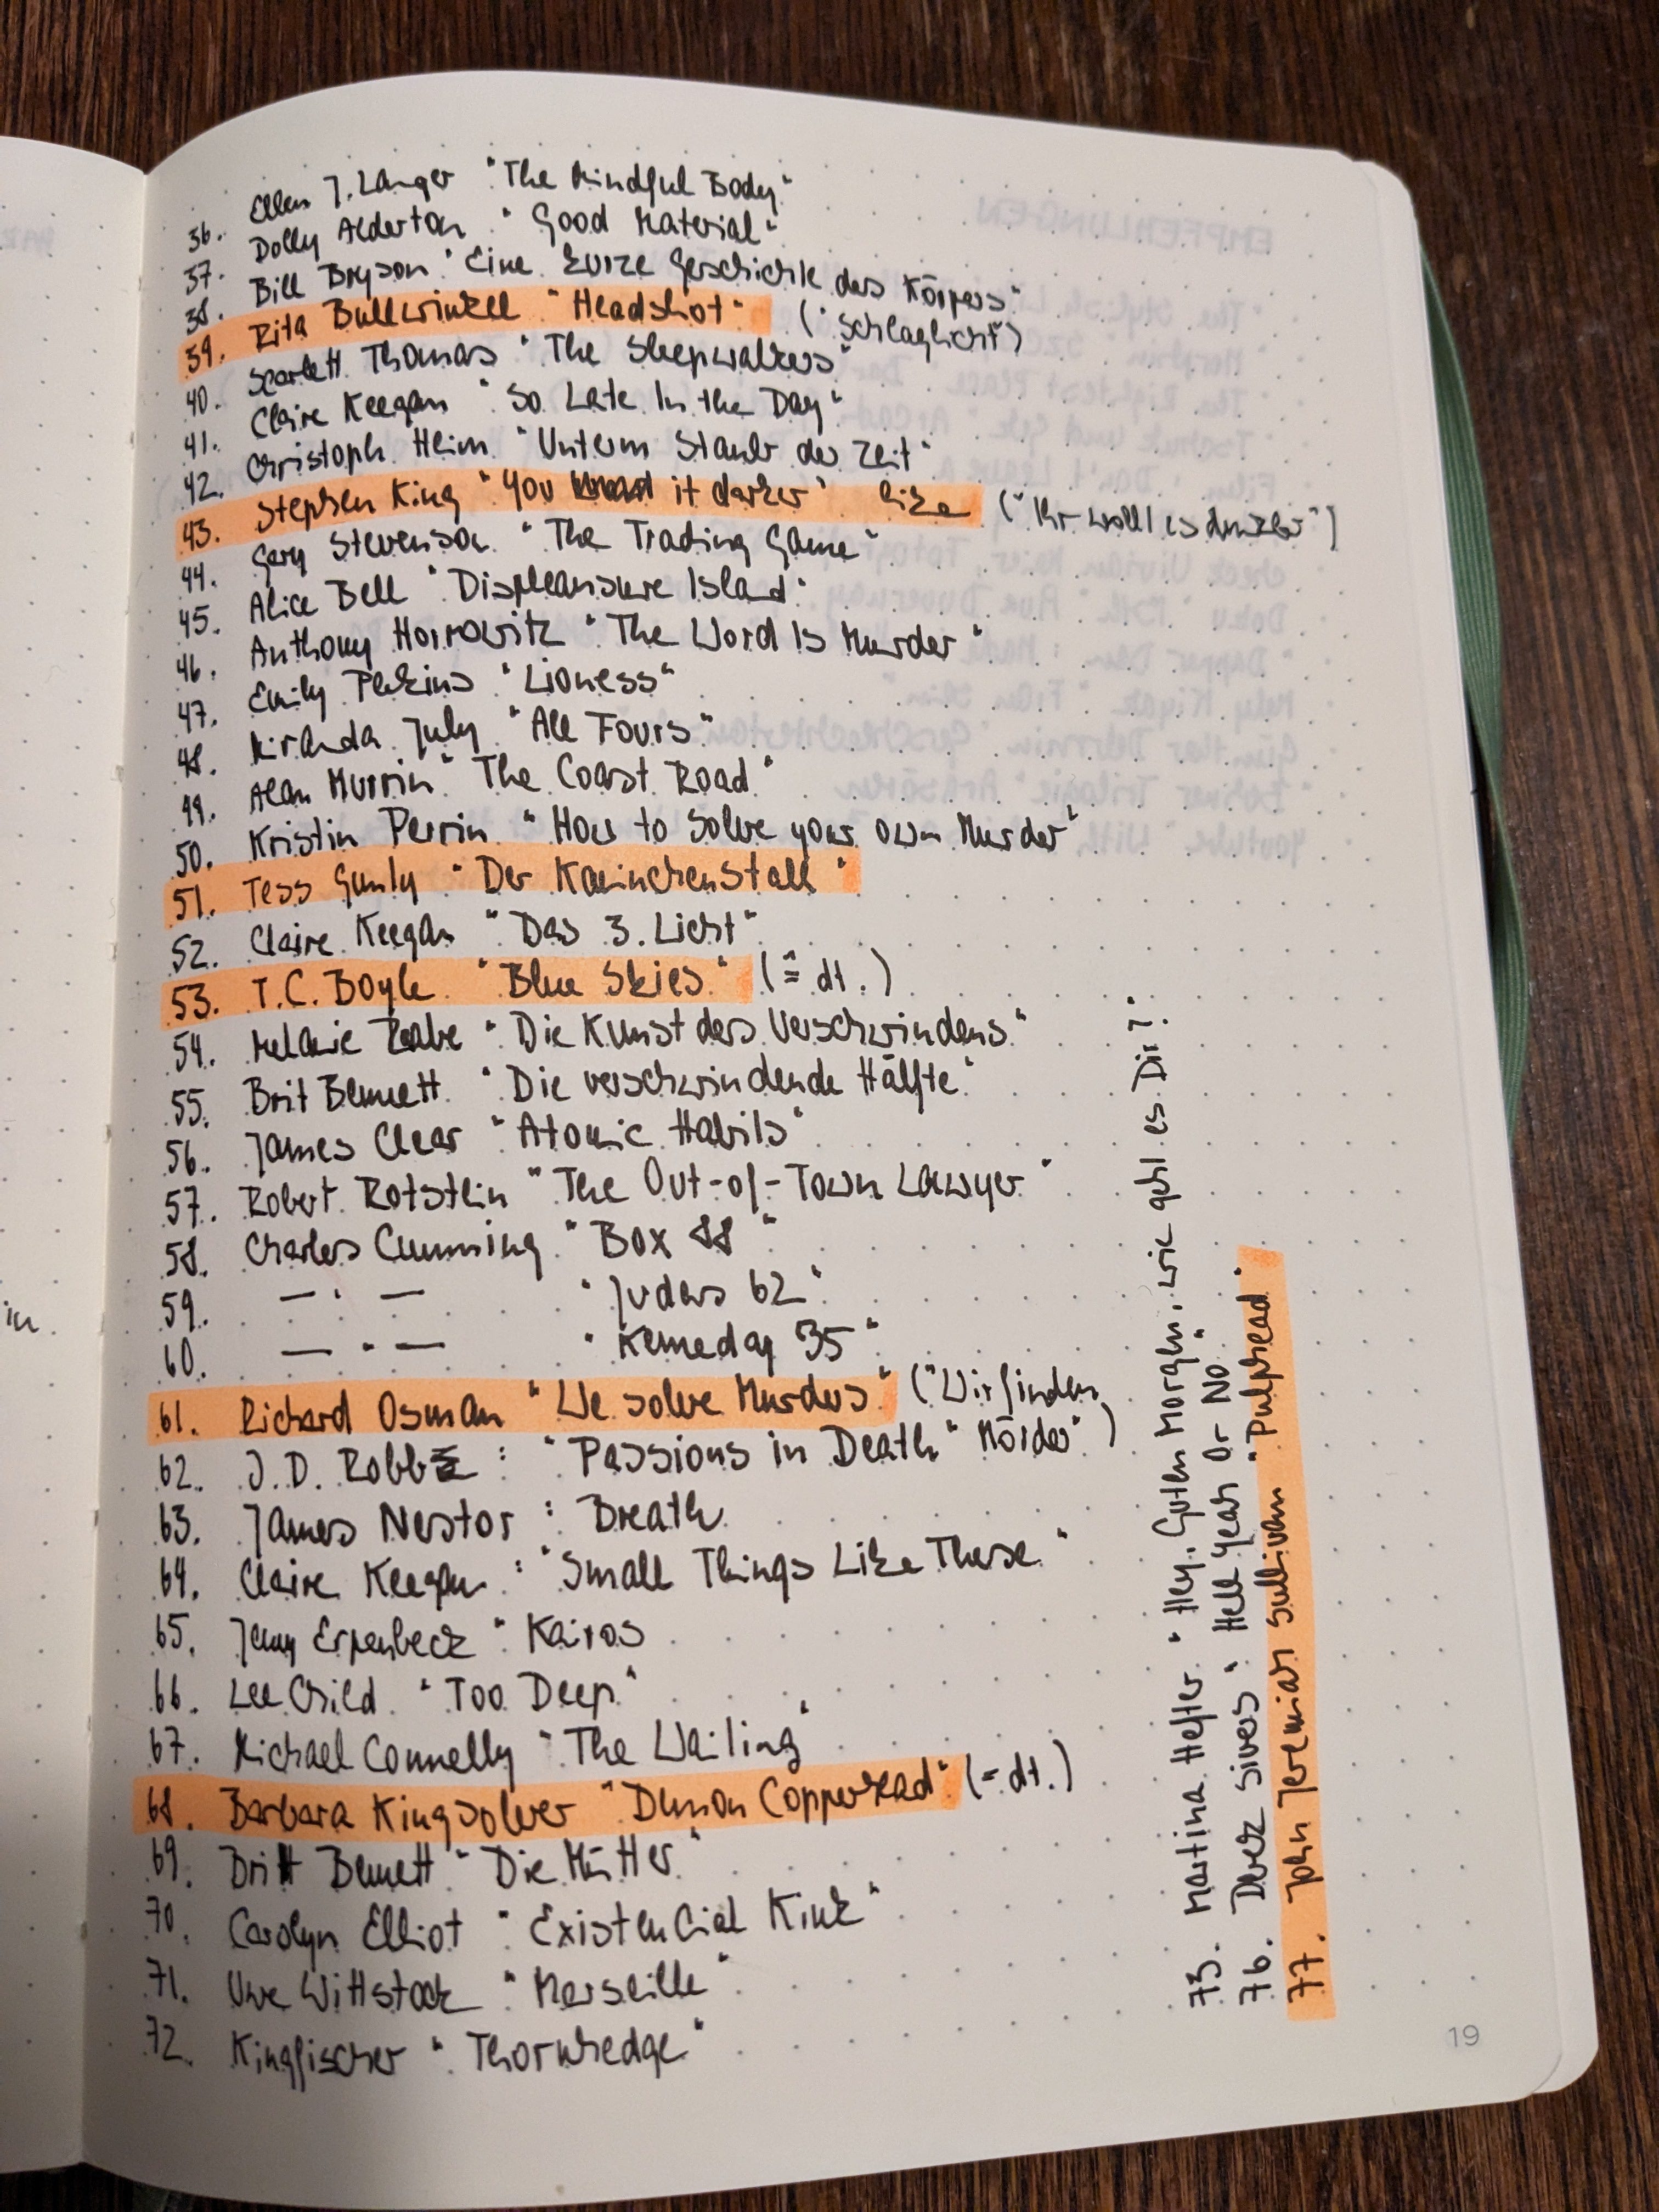 36. Ellen J. Langer "The Mindful Body"
37. Dolly Alderton "Good Material"
38. Bill Bryson "Eine kurze Geschichte des Körpers"
39. Rita Bullwinkel "Headshot" ("Schlaglicht")
40. Scarlett Thomas "The Sleepwalkers"
41. Claire Keegan "So Late In the Day"
42. Christoph Heim "Unterm Staub der Zeit"
43. Stephen King "You it darker" like ("Ihr wollt es dunkler")
44. Gary Stevenson "The Trading Game"
45. Alice Bell "Displeansure Island"
46. Anthony Horrowitz "The Word Is Murder"
47. Emily Perkins "Lioness"
48. Miranda July "All Fours"
49. Alan Murrin "The Coast Road"
50. Kristin Perrin "How to Solve your own Murder"
51. Tess Gunty "Der Kaninchenstall"
52. Claire Keegan "Das 3. Licht"
53. T.C. Boyle "Blue Skies" (≙ dt.)
54. Melanie Raabe "Die Kunst des Verschwindens"
55. Brit Bennett "Die verschwindende Hälfte"
56. James Clear "Atomic Habits"
57. Robert Rotstein "The Out-of-Town Lawyer"
58. Charles Cumming "Box 88"
59. — " — "Judas 62"
60. — " — "Kennedy 35"
61. Richard Osman "We solve Murders" ("Wir finden Mörder")
62. J.D. Robb : "Passions in Death"
63. James Nestor : Breath
64. Claire Keegan : "Small Things Like These"
65. Jenny Erpenbeck "Kairos
66. Lee Child "Too Deep"
67. Michael Connelly "The Waiting"
68. Barbara Kingsolver "Demon Copperhead" (= dt.)
69. Britt Bennett "Die Mütter"
70. Carolyn Elliot "Existencial Kink"
71. Uwe Wittstock "Marseille"
72. Kingfischer "Thornhedge"
75. Martina Hefter "Hey, Guten Morgen, wie geht es Dir?
76. Derek Sivers "Hell Yeah Or No"
77. John Jeremiah Sullivan "Pulphead"
19